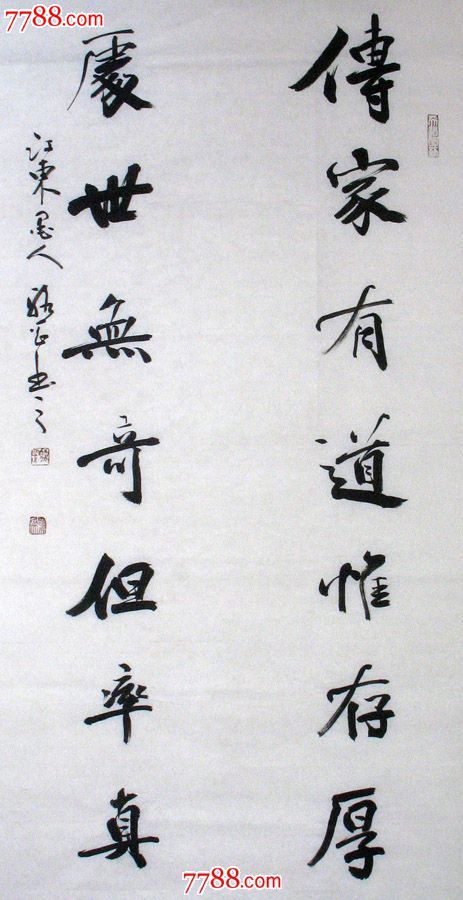 7788.com
7788.com
傳家有道惟存厚
處世無奇但率真
江東墨人 書之
7788.com